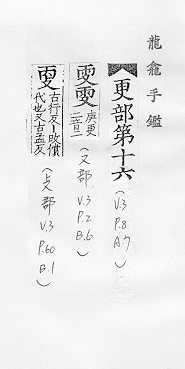 龍龕手鑑
更部第十六
(V.3
P.8
A.7
)
庚更
二音
V.3
P.2
B.6
)
古行反改償
代也又古孟反
V.3
P.60
B.1
)